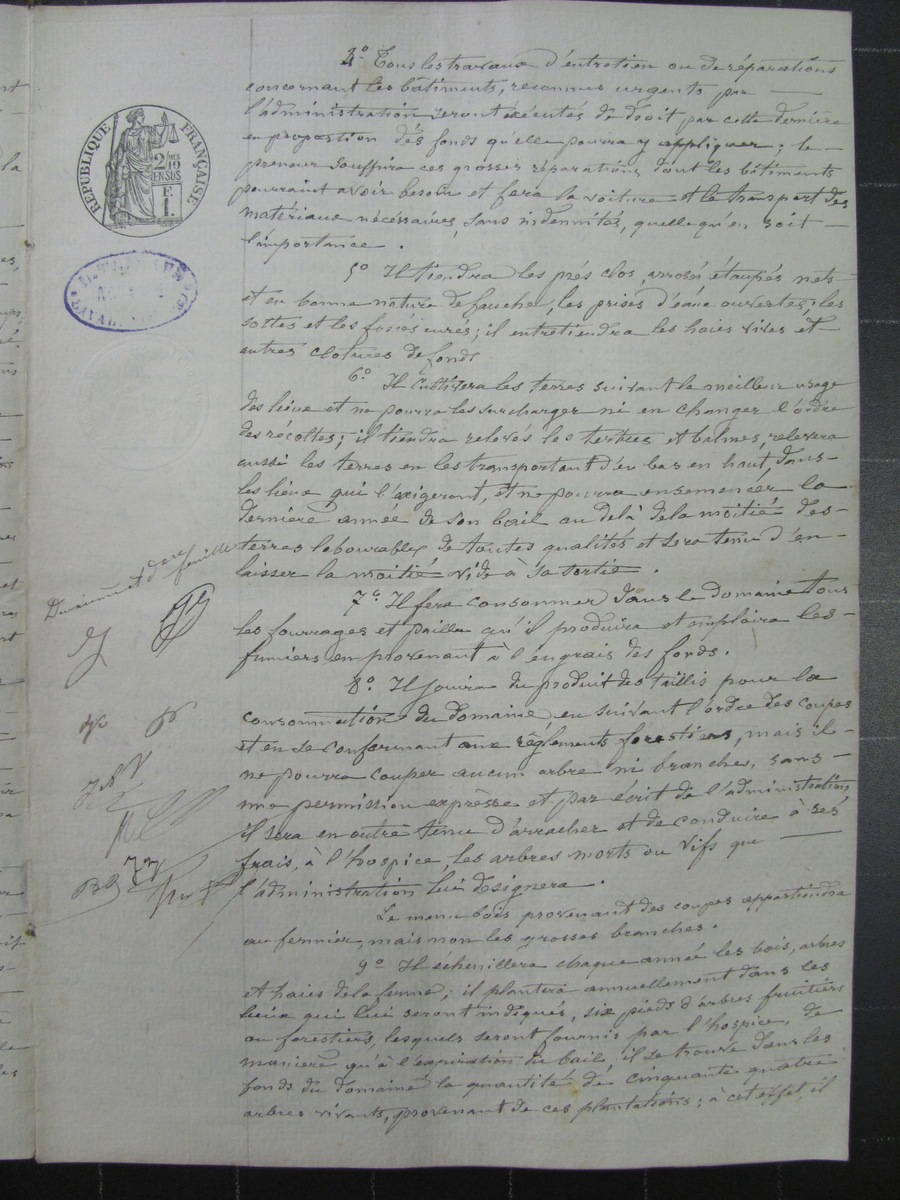 4° Tous les travaux d'entretien ou de réparations
concernant les bâtiments, reconnus urgents par
l'administration seront exécutés de droit par cette dernière
en proportion dés fonds qu'elle pourra y appliquer; le
preneur souffrira ces grosses réparations dont les bâtiments
pourraient avoir besoin et fera la voiture et le transport des
matériaux nécessaires, sans indemnités, quelle qu'en soit
l'importance.
5° Il tiendra les prés clos, arrosés étaupés nets
et en bonne nature de fauche, les prises d'eau ouvertes, les
et les fossés curés; il entretiendra les haies vives et
autres clotures de fonds
6° Il cultivera les terres suivant le meilleur usage
des lieux et ne pourra les surcharger ni en changer l'ordre
des récoltes; il tiendra relevés les tertres et balmes, relevera
aussi les terres en les transportant d'en bas en haut, dans
les lieux qui l'exigeront, et ne pourra ensemencer la
dernière année de son bail au delà de la moitié des
terres labourables de toutes qualités et sera tenu d'en
laisser la moitié vide à sa sortie.
7° Il fera consommer dans le domaine tous
les fourrages et paille qu'il produira et emploira les
fumiers en provenant à l'engrais des fonds.
8° Il jouira du produit des taillis pour la
consommation du domaine en suivant l'ordre des coupes
et en se conformant aux règlements forestiers, mais il
ne pourra couper aucun arbre ni branches, sans
une permission expresse et par écrit de l'administration
il sera en outre tenu d'arracher et de conduire à ses
frais, à l'hospice, les arbres morts ou vifs que
l'administration lui désignera.
Le menu bois provenant des coupes appartiendra
au fermier, mais non les grosses branches.
9° Il échenillera chaque année les bois, arbres
et haies de la ferme; il plantera annuellement dans les
lieux qui lui seront indiqués, six pieds d'arbres fruitiers
ou forestiers, lesquels seront fournis par l'hospice, de
manière qu'à l'expiration du bail, il se trouve dans les
fonds du domaine la quantité de cinquante quatre
arbres vivants, provenant de ces plantations; à cet effet, il
RÉPUBLIQUE FRANÇAISE
2/10
EN SUS
feuille